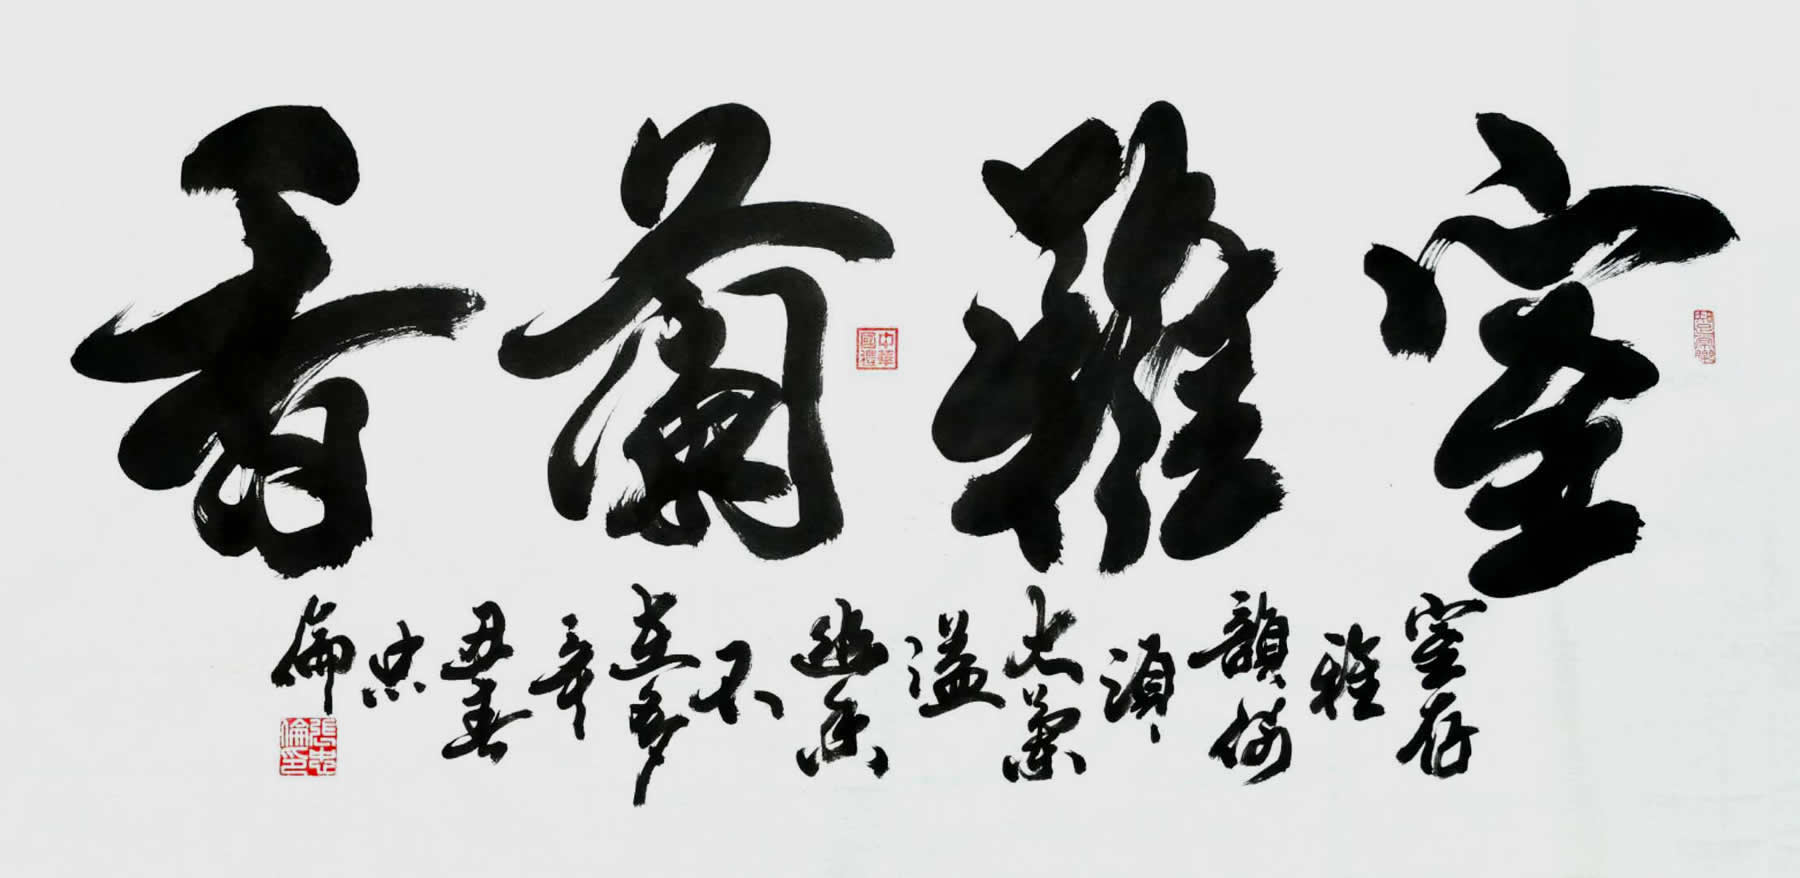 室雅蘭香
室存
雅
韻何
須
大蘭
溢
幽香
不
在多
辛
丑春
忠
倫
張忠倫印